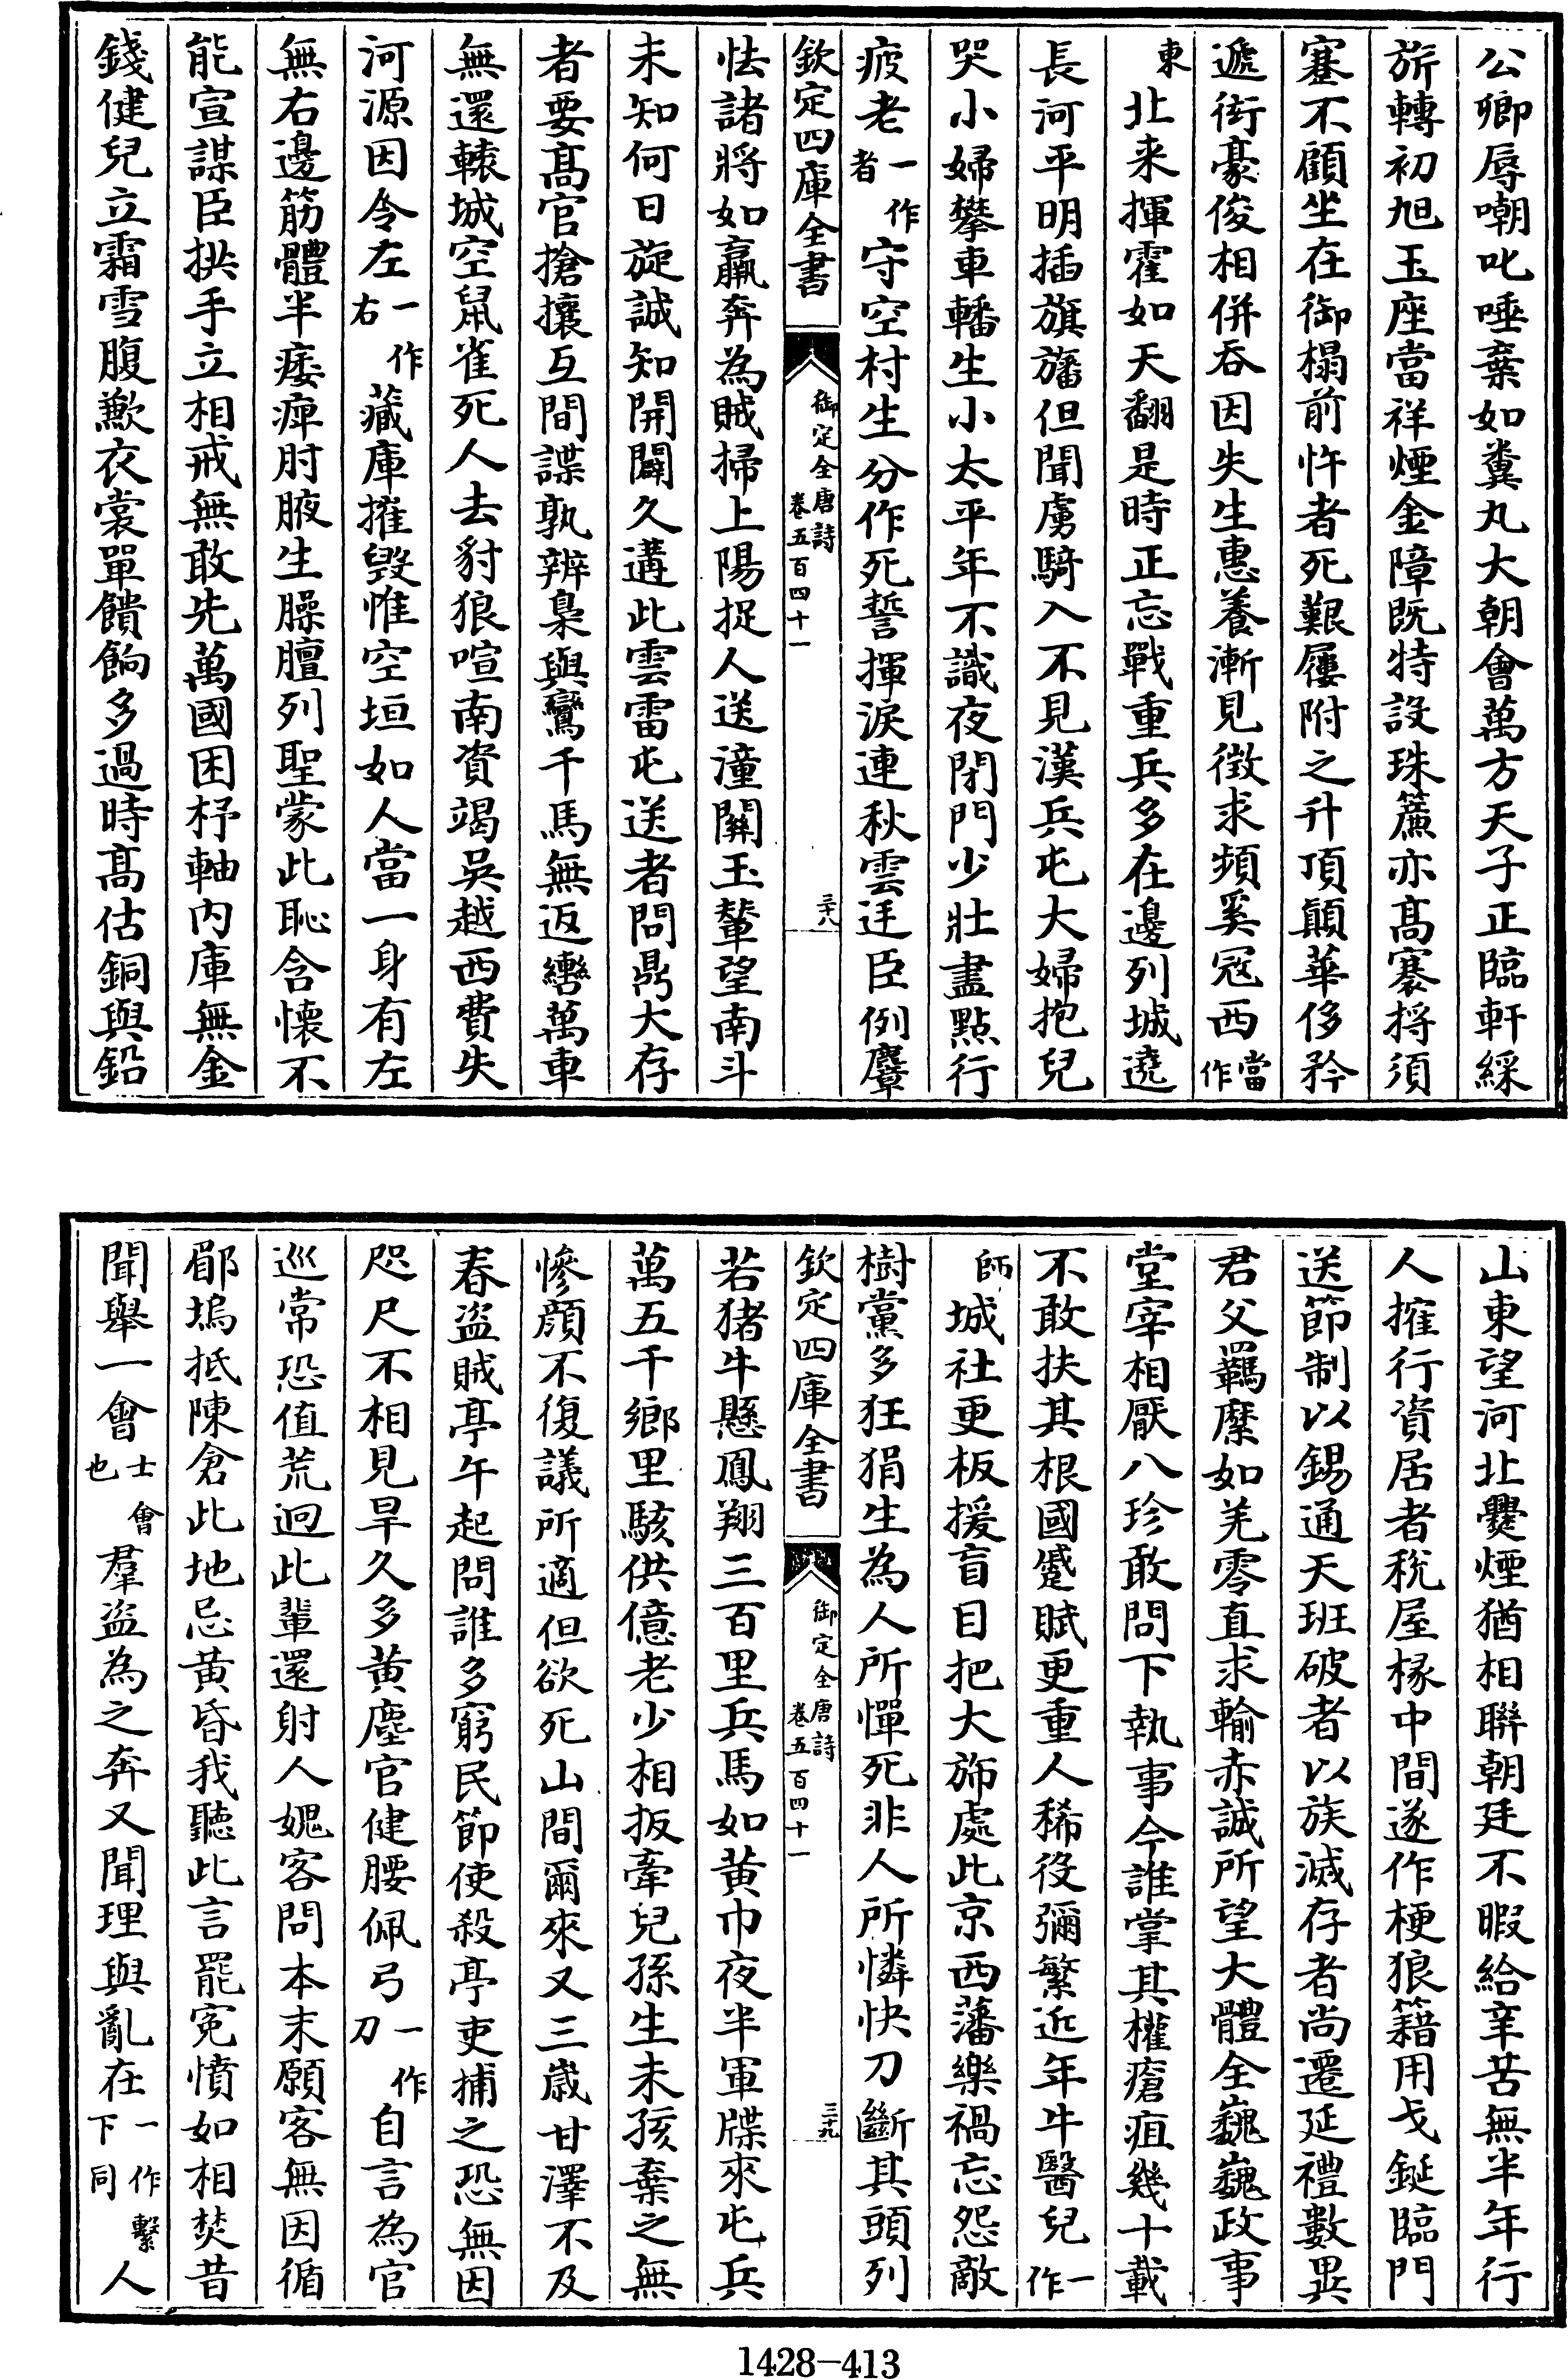 公卿辱嘲叱唾棄如糞丸大朝㑹萬方天子正臨軒綵
旂轉初旭玉座當祥煙金障既特設珠簾亦髙褰捋須
蹇不顧坐在御榻前忤者死艱屨附之升頂顛華侈矜
遞衒豪俊相併吞因失生惠養漸見徴求頻奚冦西當作
東北来揮霍如天翻是時正忘戰重兵多在邊列城遶
長河平明插旗旛但聞虜騎入不見漢兵屯大婦抱兒
哭小婦攀車轓生小太平年不識夜閉門少壯盡點行
疲老一作者守空村生分作死誓揮淚連秋雲廷臣例麞
欽定四庫全書
御定全唐詩卷五百四十一
三十八
怯諸將如羸奔為賊掃上陽捉人送潼關玉輦望南斗
未知何日旋誠知開闢久遘此雲雷屯送者問鼎大存
者要髙官搶攘互間諜孰辨梟與鸞千馬無返轡萬車
無還轅城空鼠雀死人去豺狼喧南資竭吳越西費失
河源因令左一作右藏庫摧毁惟空垣如人當一身有左
無右邊筋體半痿痺肘腋生臊膻列聖蒙此恥含懐不
能宣謀臣拱手立相戒無敢先萬國困杼軸内庫無金
錢健兒立霜雪腹歉衣裳單饋餉多過時髙估銅與鉛
山東望河北爨煙猶相聨朝廷不暇給辛苦無半年行
人㩁行資居者税屋椽中間遂作梗狼籍用戈鋋臨門
送節制以錫通天班破者以族滅存者尚遷延禮數異
君父羈縻如羌零直求輸赤誠所望大體全巍巍政事
堂宰相厭八珍敢問下執事今誰掌其權瘡疽幾十載
不敢扶其根國蹙賦更重人稀役彌繁近年牛醫兒一作
師城社更板援盲目把大斾處此京西藩樂禍忘怨敵
樹黨多狂狷生為人所憚死非人所憐快刀斷其頭列
欽定四庫全書
御定全唐詩卷五百四十一
三十九
若猪牛懸鳳翔三百里兵馬如黄巾夜半軍牒來屯兵
萬五千鄉里駭供億老少相扳牽兒孫生未孩棄之無
慘顔不復議所適但欲死山間爾來又三嵗甘澤不及
春盜賊亭午起問誰多窮民節使殺亭吏捕之恐無因
咫尺不相見旱久多黄塵官健腰佩弓一作刀自言為官
巡常恐值荒迥此輩還射人媿客問本末願客無因循
郿塢抵陳倉此地忌黄昏我聽此言罷寃憤如相焚昔
聞舉一㑹士㑹也羣盜為之奔又聞理與亂在一作繫下同人
1428-413